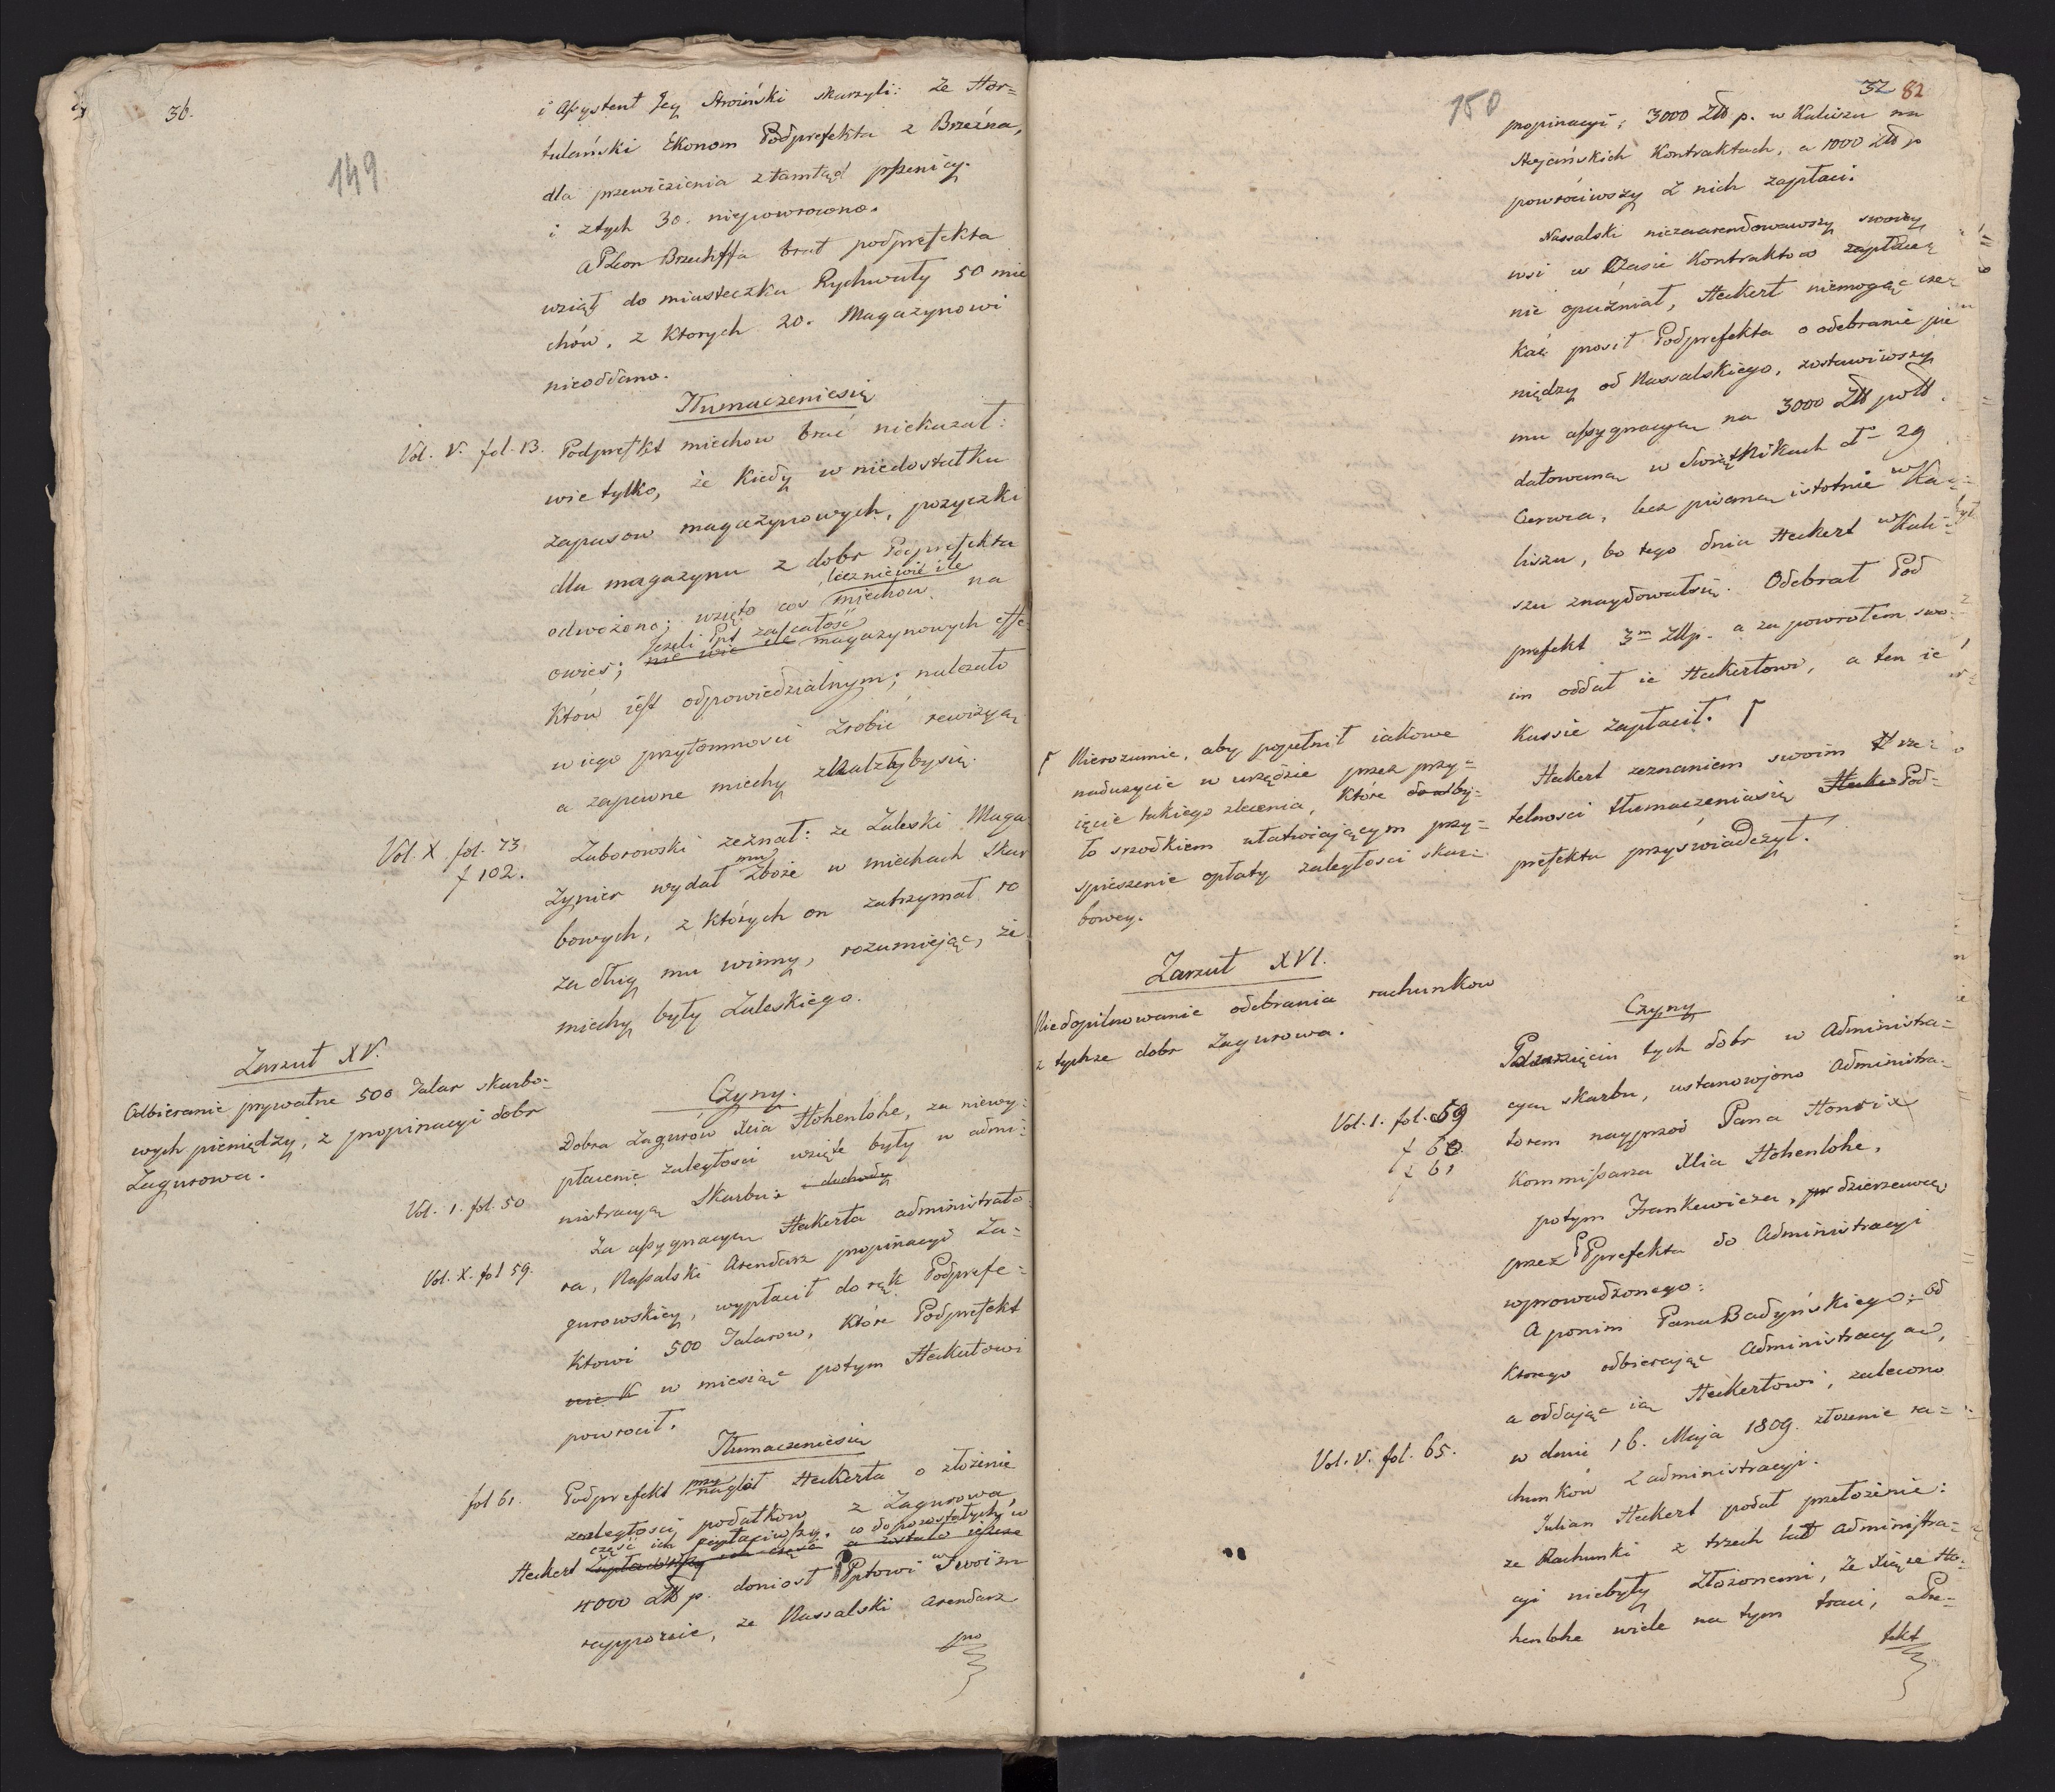 36.
149
i Assystent Jey Stroiński skarzyli: że Hor=
tulański Ekonom Podprefekta z Brzeźna,
dla przewiezienia ztamtąd pszenicy.
i ztych 30. niepowrocono.
A Leon Brzechffa brat podprefekta
wziął do miasteczka Rychwały 50 mie
chów, z ktorych 20. Magazynowi
nieoddano.
Tłumaczeniesię
Vol. V. fol. 13. Podprefekt miechow brać niekazał:
wie tylko, że kiedy w niedostatku
zapasow magazynowych, pożyczki
dla magazynu z dobr Podprefekta
odwożono; wzięto cos miechow, lecz niewie ile na
owies; Jeżeli Ppt za całość nie wie ile magazynowych effe
któw iest odpowiedzialnym; należało
w iego przytomności zrobić rewizyą
a zapewne miechy znalazłyby się.
Vol. X. fol. 73
f 102.
Zaborowski zeznał: ze Zaleski Maga
zynier wydał mu zboże w miechach skar
bowych, z których on zatrzymał 10
za dług mu winny, rozumiejąc, że
miechy były Zaleskiego.
Zarzut XV.
Odbieranie prywatne 500 Talar skarbo=
wych pieniędzy, z propinacyi dobr
Zagurowa.
Czyny.
Dobra Zagurów Xcia Hohenlohe, za niewy=
płacenie zaległosci wzięte były w admi=
Vol. 1. fol. 50
nistracyą Skarbu: i dochody
Za assygnacyą Heckerta administrato
Vol. X. fol 59.
ra, Nassalski Arendarz propinacyi Za=
gurowskiey, wypłacił do rąk Podprefe=
ktowi 500 Talarow, które Podprefekt
nie W w miesiąc potym Heckertowi
powrocił.
Tłumaczeniesię
fol 61. Podprefekt przynaglał Heckerta o złożenie
zaległosci podatkow z Zagurowa
część ich zapłaciwszy, co do pozostałych w
Heckert Zapłaciwszy ich część a zostało ieszcze
4000 Złł p. doniosł PPptowi w Swoim
rapporcie, ze Nassalski arendarz
pro
150
32 82
propinacyi; 3000 Złł p. w Kaliszu na
Stojańskich Kontraktach, a 1000 złł p
powrociwszy z nich zapłaci.
Nassalski niezaarendowawszy swoiey
wsi w Czasie Kontraktow zapłace
nie opuźniał, Heckert niemogąc cze
kać prosił Podprefekta o odebranie pie
niędzy od Nassalskiego, zostawiwszy
mu assygnacyą na 3000 Złł poll.
datowaną w Swiątnikach d- 29
Czerwca, lecz pisaną istotnie w Ka
liszu, bo tego dnia Heckert w Kali=
szu znaydowałsię. Odebrał Pod
prefekt 3m Złlp. a za powrotem swo=
im oddał ie Heckertowi, a ten ie
Kassie zapłacił. ʃ
ʃ Nierozumie, aby popełnił iakowe
nadużycie w urzędzie przez przy=
ięcie takiego zlecenia, które by=
ło srzodkiem ułatwiającym przy=
spieszenie opłaty zaległosci skar=
bowey.
Heckert zeznaniem swoim rze=
telnosci tłumaczeniasię Hecke Pod=
prefekta przyświadczył.
Zarzut XVI.
Niedopilnowanie odebrania rachunkow
z tychze dobr Zagurowa.
Czyny
Po zawzięciu tych dobr w Administra=
cyą skarbu, ustanowjono Administra=
Vol. 1. fol. 59
f 60.
f 61
torem nayprzod Pana Honrix
Kommissarza Xcia Hohenlohe,
potym Frankewicza, dzierzawcę
przez PPprefekta do Administracyi
wprowadzonego:
A ponim Pana Badyńskiego; od
ktorego odbierając Administracyą,
a oddając ią Heckertowi, zalecono
w dniu 16. Maja 1809. złozenie ra=
chunków z administracyi.
Vol. V. fol. 65.
Julian Heckert podał przełożenie:
ze Rachunki z trzech lat Administra=
cyi niebyły złożonemi, że Xiąże Ho=
henlohe wiele na tym traci, a Pre=
fekt